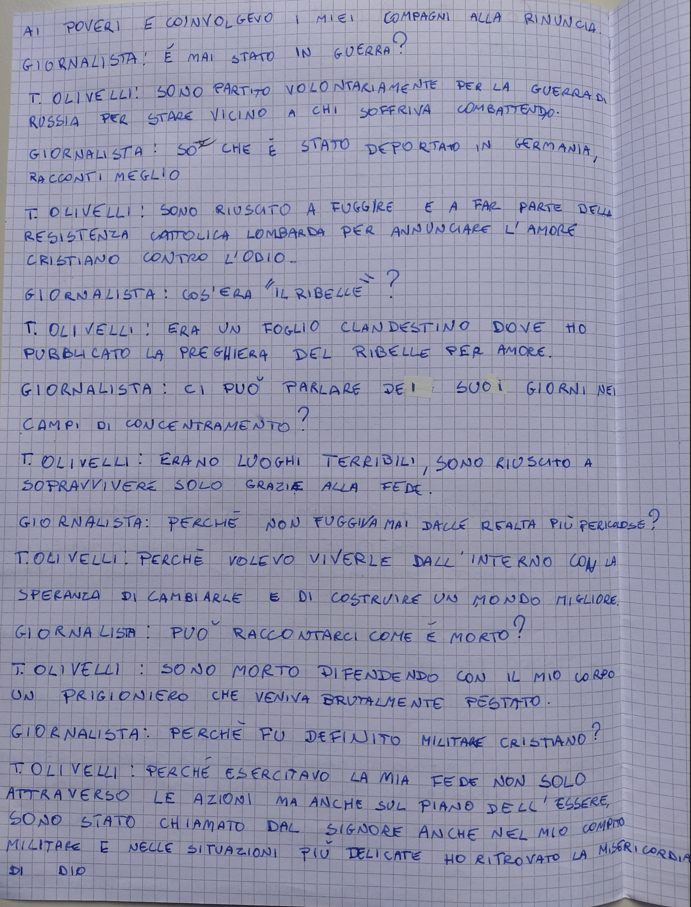 AI POVERI E COINVOLGEVO I MIEI COMPAGNI ALLA RINUNCIA.
GIORNALISTA: È MAI STATO IN GUERRA?
T. OLIVELLI: SONO PARTITO VOLONTARIAMENTE PER LA GUERRA DI
RUSSIA PER STARE VICINO A CHI SOFFRIVA COMBATTENDO.
GIORNALISTA: SO CHE È STATO DEPORTATO IN GERMANIA,
RACCONTI MEGLIO
T. OLIVELLI: SONO RIUSCITO A FUGGIRE E A FAR PARTE DELLA
RESISTENZA CATTOLICA LOMBARDA PER ANNUNCIARE L'AMORE
CRISTIANO CONTRO L'ODIO.
GIORNALISTA: COS'ERA "IL RIBELLE"?
T. OLIVELLI: ERA UN FOGLIO CLANDESTINO DOVE HO
PUBBLICATO LA PREGHIERA DEL RIBELLE PER AMORE.
GIORNALISTA: CI PUÒ PARLARE DEI SUOI GIORNI NEI
CAMPI DI CONCENTRAMENTO?
T. OLIVELLI: ERANO LUOGHI TERRIBILI, SONO RIUSCITO A
SOPRAVVIVERE SOLO GRAZIE ALLA FEDE.
GIORNALISTA: PERCHÈ NON FUGGIVA MAI DALLE REALTA PIÙ PERICOLOSE?
T. OLIVELLI: PERCHÈ VOLEVO VIVERLE DALL'INTERNO CON LA
SPERANZA DI CAMBIARLE E DI COSTRUIRE UN MONDO MIGLIORE.
GIORNALISTA: PUÒ RACCONTARCI COME È MORTO?
T. OLIVELLI: SONO MORTO DIFENDENDO CON IL MIO CORPO
UN PRIGIONIERO CHE VENIVA BRUTALMENTE PESTATO.
GIORNALISTA: PERCHÈ FU DEFINITO MILITARE CRISTIANO?
T. OLIVELLI: PERCHÈ ESERCITAVO LA MIA FEDE NON SOLO
ATTRAVERSO LE AZIONI MA ANCHE SUL PIANO DELL'ESSERE,
SONO STATO CHIAMATO DAL SIGNORE ANCHE NEL MIO COMPITO
MILITARE E NELLE SITUAZIONI PIÙ DELICATE HO RITROVATO LA MISERICORDIA
DI DIO